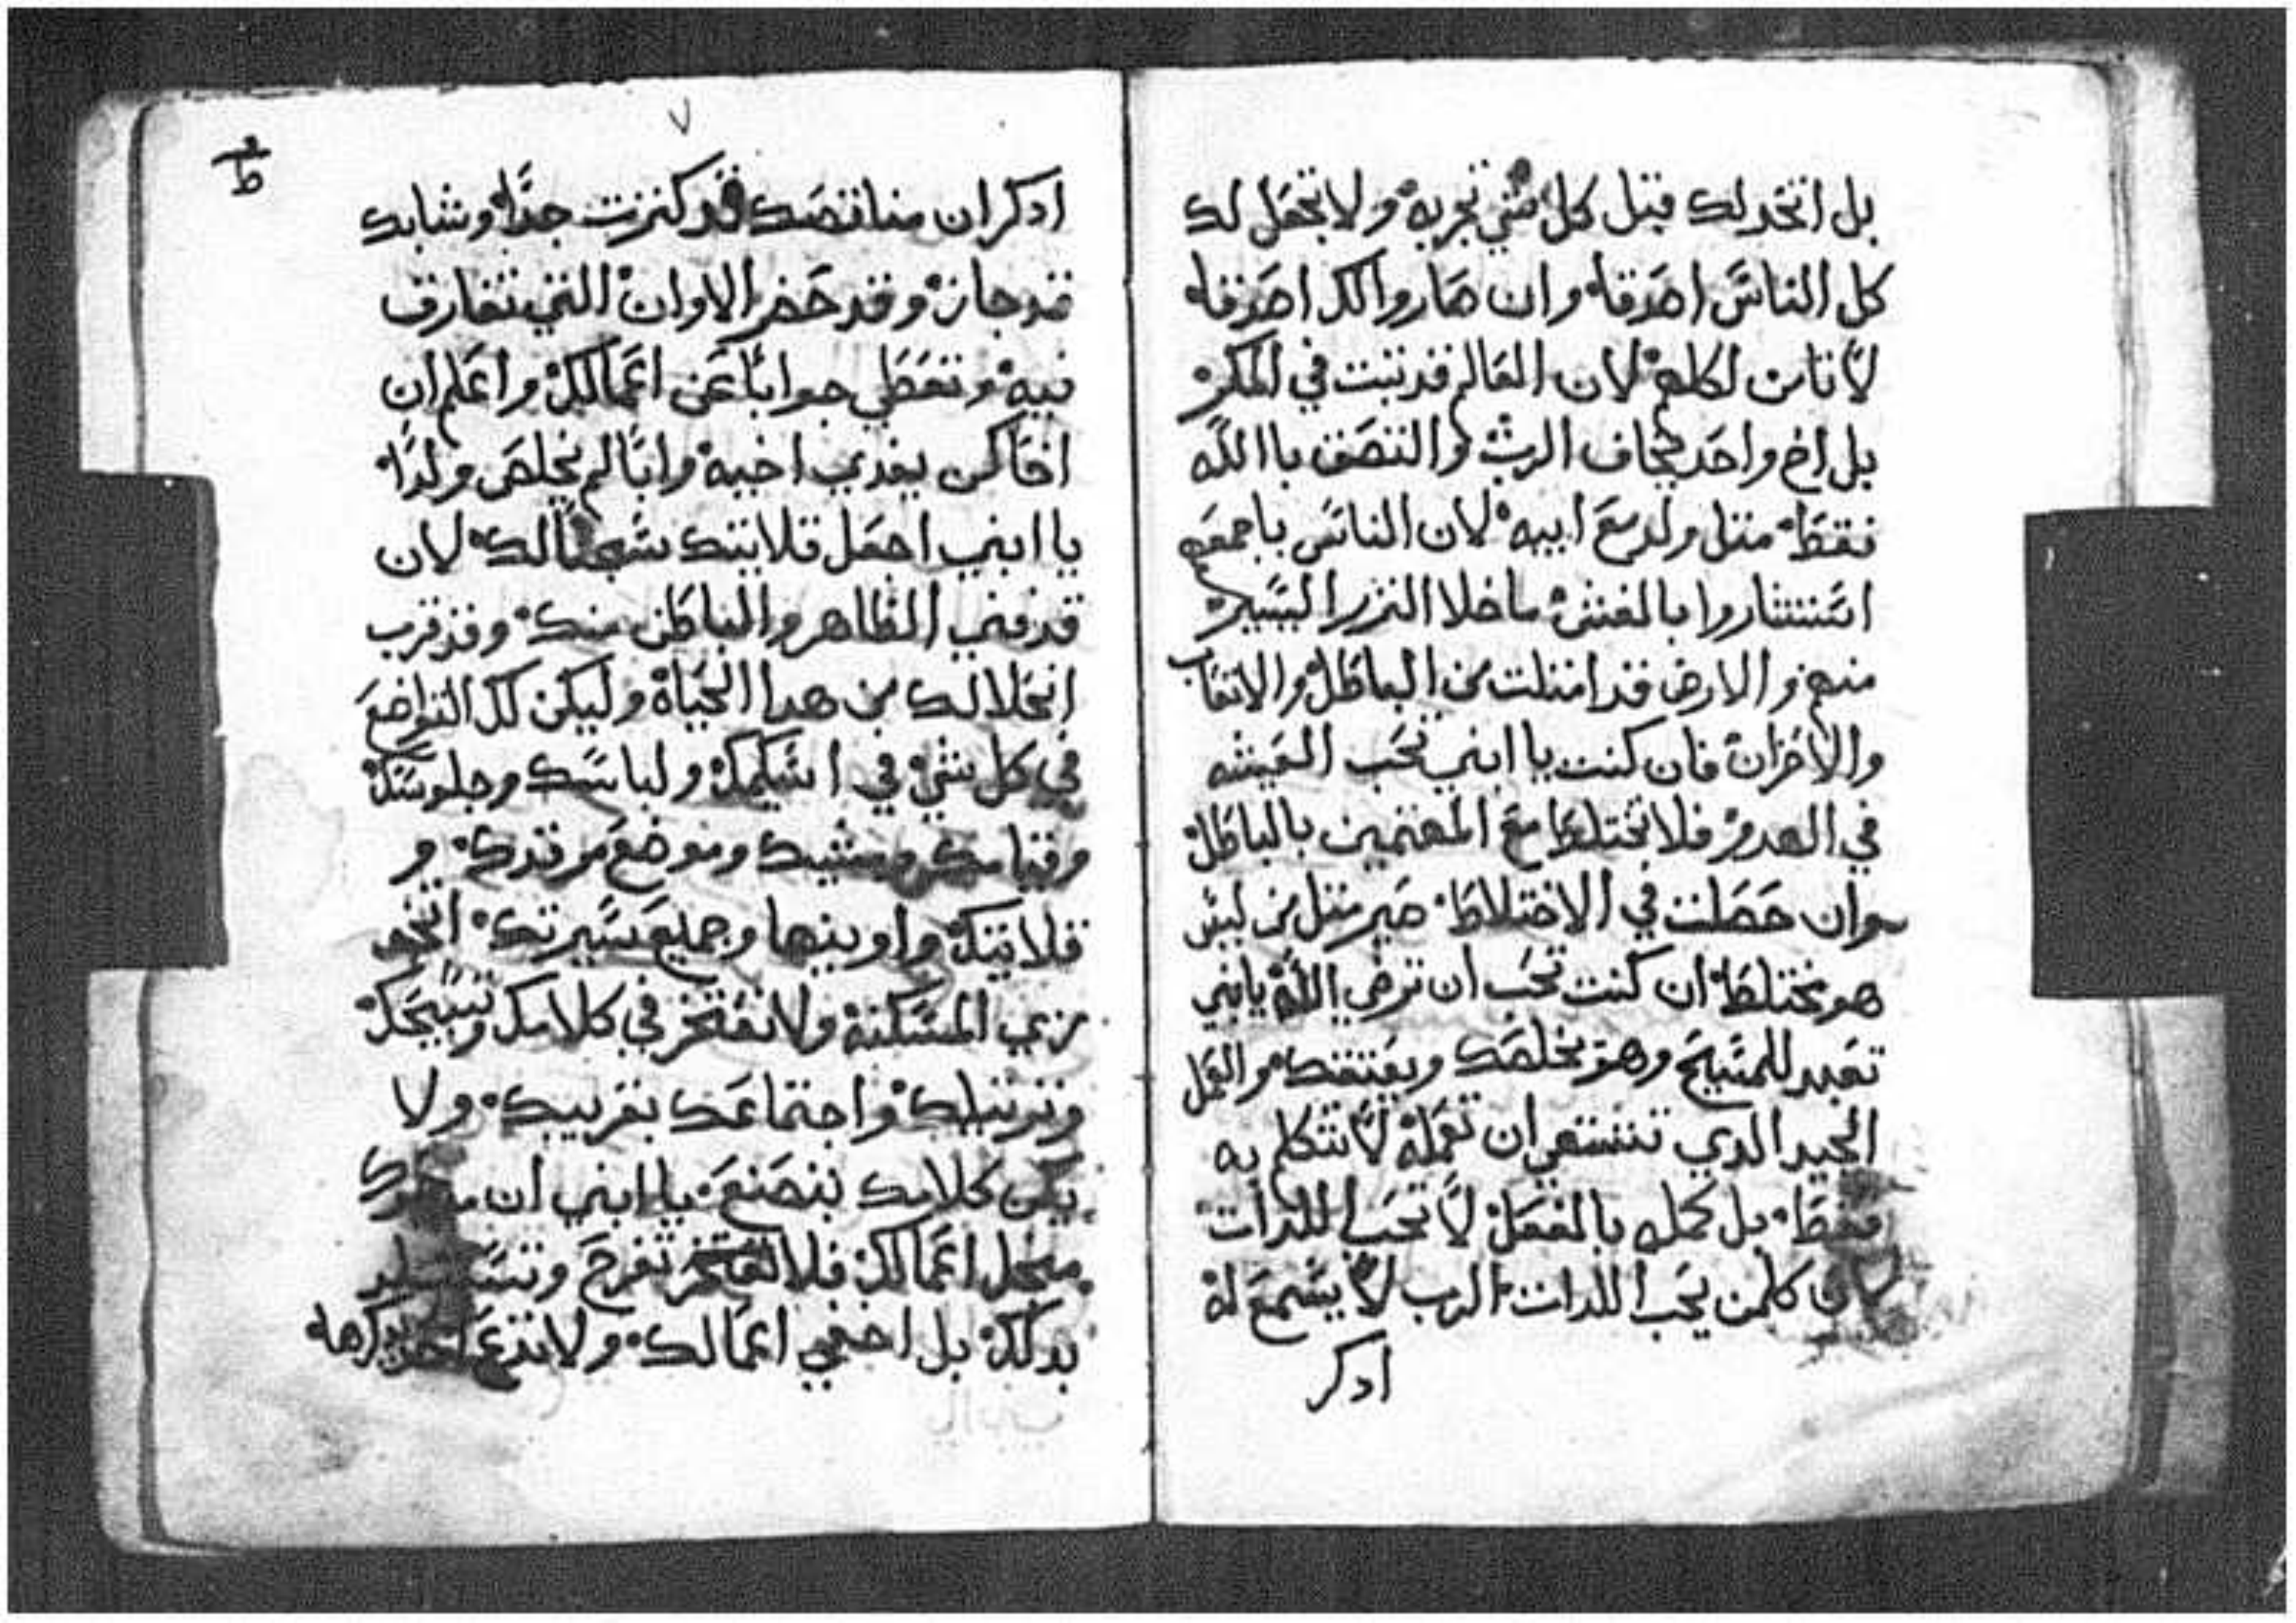 بل اتخد لك قبل كل شي تجربه ولا تجعل لك
كل الناس اصدقا وان صاروا الكل اصدقا
لا تامن لكلهم لان العالم قد تبت في المكر
بل اخ واحد يخاف الرب والتصق باالله
فقط متل ولد مع ابيه لان الناس باجمعهم
استتاروا بالغش ماخلا النزر اليسير
منهم والارض قد امتلت من الباطل والاتعاب
والاحزان فان كنت يا ابني تحب العيشه
في الهدو فلا تختلط مع المهتمين بالباطل
وان حصلت في الاختلاط صير متل من ليس
هو مختلط ان كنت تحب ان ترضي الله يابني
تعبد للمسيح وهو يخلصك ويعتقك والعمل
الجيد الدي تشتهي ان تعمله لا تتكلم به
فقط بل كمله بالفعل لا تحب اللدات
لان كلمن يحب اللدات الرب لا يسمع له
ادكر
٧
ط
ادكر ان مناقصك قد كترت جدا وشبابك
قد جاز وقد حضر الاوان التي تفارق
فيه وتعطي جوابا عن اعمالك واعلم ان
اخا لن يفدي اخيه وابا لم يخلص ولدا
يا ابني اجعل قلايتك سجنا لك لان
قد فني الظاهر والباطن منك وقد قرب
انحلالك من هدا الحياة وليكن لك التواضع
في كل شي في اسكيمك ولباسك وجلوسك
وقيامك ومشيك وموضع مرقدك و
قلايتك واوينها وجميع سيرتك اتخد
زي المسكنة ولا تفتخر في كلامك وتسبيحك
وترتيلك واجتماعك بقريبك ولا
يكن كلامك بتصنع يا ابني ان
اعمالك فلا تفتخر تفرح
بدلك بل اخفي اعمالك ولا تدع احد يدكرها